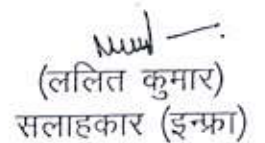 (ललित कुमार)
सलाहकार (इन्फ्रा)